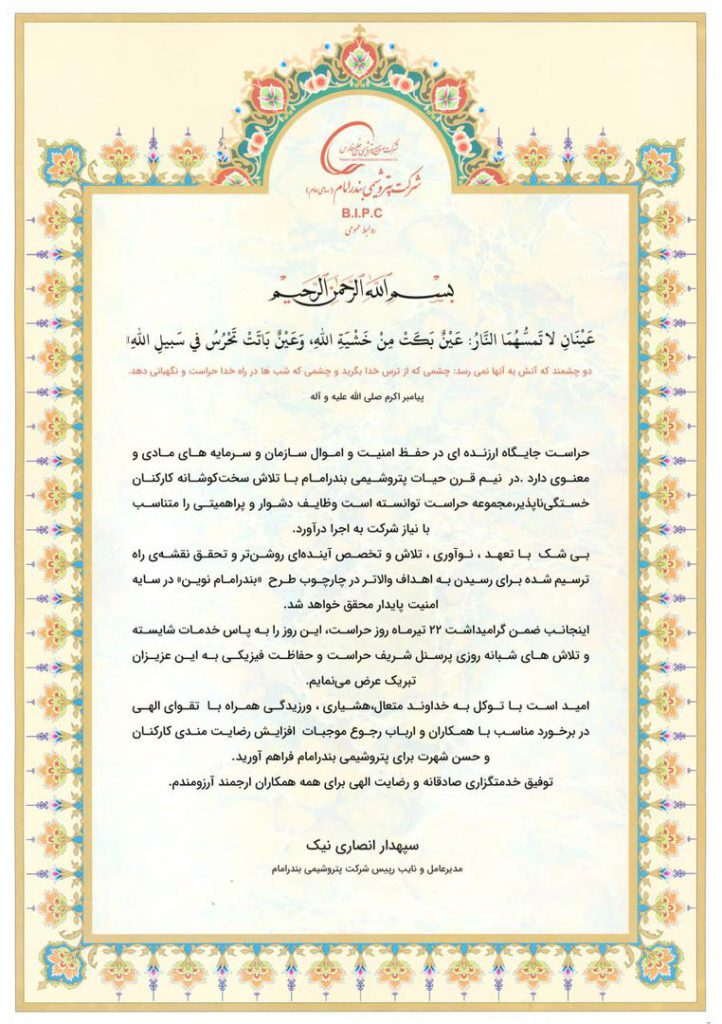 شرکت صنایع پتروشیمی خلیج فارس
شرکت پتروشیمی بندرامام (سهامی عام)
B.I.P.C
روابط عمومی
بسم الله الرحمن الرحیم
عَيْنَانِ لا تَمسُّهُمَا النَّارُ: عَيْنٌ بَكَتْ مِنْ خَشْيَةِ اللهِ، وَعَيْنٌ بَاتَتْ تَحْرُسُ في سَبيلِ اللهِ؛
دو چشمند که آتش به آنها نمی رسد: چشمی که از ترس خدا بگرید و چشمی که شب ها در راه خدا حراست و نگهبانی دهد.
پیامبر اکرم صلی الله علیه و آله
حراست جایگاه ارزنده ای در حفظ امنیت و اموال سازمان و سرمایه های مادی و
معنوی دارد .در نیم قرن حیات پتروشیمی بندرامام با تلاش سخت‌کوشانه کارکنان
خستگی‌ناپذیر،مجموعه حراست توانسته است وظایف دشوار و پراهمیتی را متناسب
با نیاز شرکت به اجرا درآورد.
بی شک با تعهد ، نوآوری ، تلاش و تخصص آینده‌ای روشن‌تر و تحقق نقشه‌ی راه
ترسیم شده برای رسیدن به اهداف والاتر در چارچوب طرح «بندرامام نوین» در سایه
امنیت پایدار محقق خواهد شد.
اینجانب ضمن گرامیداشت ۲۲ تیرماه روز حراست، این روز را به پاس خدمات شایسته
و تلاش های شبانه روزی پرسنل شریف حراست و حفاظت فیزیکی به این عزیزان
تبریک عرض می‌نمایم.
امید است با توکل به خداوند متعال،هشیاری ، ورزیدگی همراه با تقوای الهی
در برخورد مناسب با همکاران و ارباب رجوع موجبات افزایش رضایت مندی کارکنان
و حسن شهرت برای پتروشیمی بندرامام فراهم آورید.
توفیق خدمتگزاری صادقانه و رضایت الهی برای همه همکاران ارجمند آرزومندم.
سپهدار انصاری نیک
مدیرعامل و نایب رییس شرکت پتروشیمی بندرامام